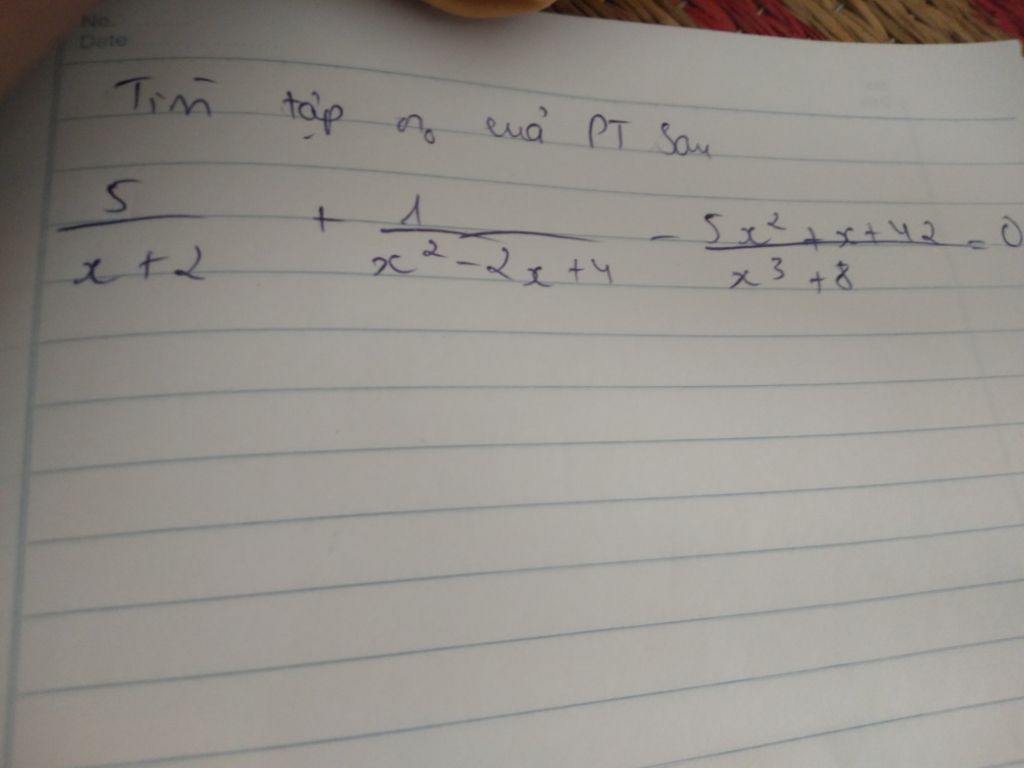 No.
Date
Tìm tập no cuả PT Sau
5/(x + 2) + 1/(x² - 2x + 4) - (5x² + x + 42)/(x³ + 8) = 0